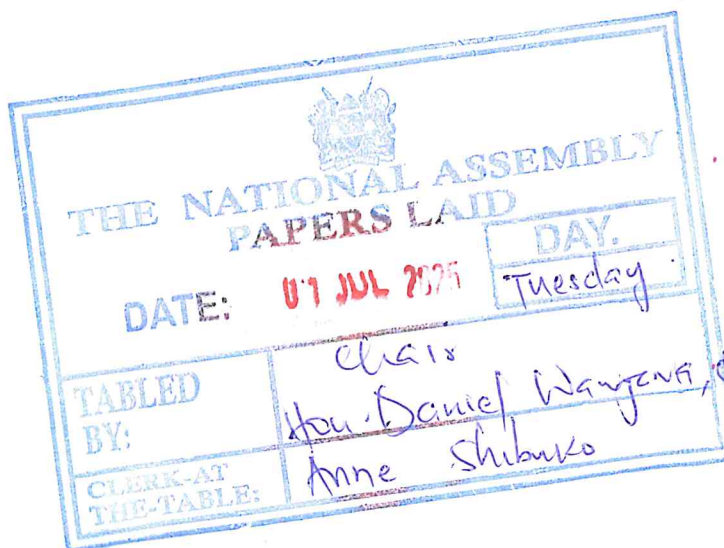 THE NATIONAL ASSEMBLY
PAPERS LAID
DATE: 01 JUL 2025
DAY.
Tuesday
TABLED BY:
Chair
Hon. Daniel Wanyama,
CLERK-AT THE-TABLE:
Anne Shibuko